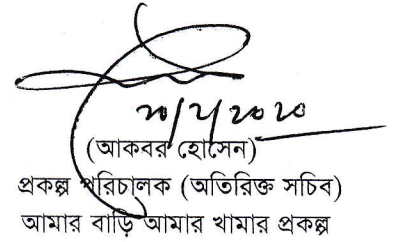 ২০/২/২০২০
(আকবর হোসেন)
প্রকল্প পরিচালক (অতিরিক্ত সচিব)
আমার বাড়ি আমার খামার প্রকল্প